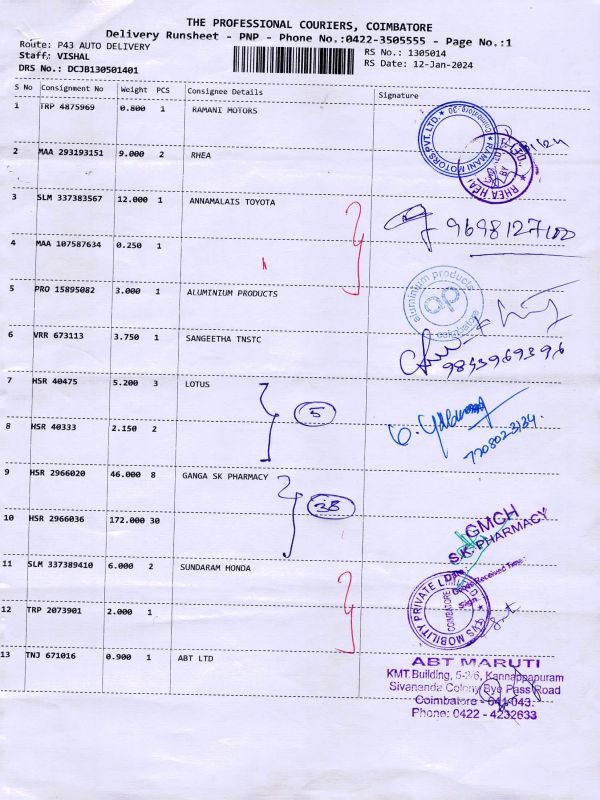 THE PROFESSIONAL COURIERS, COIMBATORE
Delivery Runsheet - PNP - Phone No.:0422-3505555 - Page No.:1
Route: P43 AUTO DELIVERY
RS No.: 1305014
Staff: VISHAL
RS Date: 12-Jan-2024
DRS No.: DCJB130501401
S No Consignment No Weight PCS Consignee Details Signature
1 TRP 4875969 0.800 1 RAMANI MOTORS
RAMANI MOTORS PVT. LTD.
2 MAA 293193151 9.000 2 RHEA
3 SLM 337383567 12.000 1 ANNAMALAIS TOYOTA
4 MAA 107587634 0.250 1
5 PRO 15895082 3.000 1 ALUMINIUM PRODUCTS
aluminium products
ap
coimbatore
6 VRR 673113 3.750 1 SANGEETHA TNSTC
7 HSR 40475 5.200 3 LOTUS
5
8 HSR 40333 2.150 2
9 HSR 2966020 46.000 8 GANGA SK PHARMACY
38
10 HSR 2966036 172.000 30
GMCH
S.K. PHARMACY
11 SLM 337389410 6.000 2 SUNDARAM HONDA
12 TRP 2073901 2.000 1
13 TNJ 671016 0.900 1 ABT LTD
ABT MARUTI
KMT Building, 5-2/6, Kannappapuram
Sivananda Colony Bye Pass Road
Coimbatore - 641 043.
Phone: 0422 - 4232633